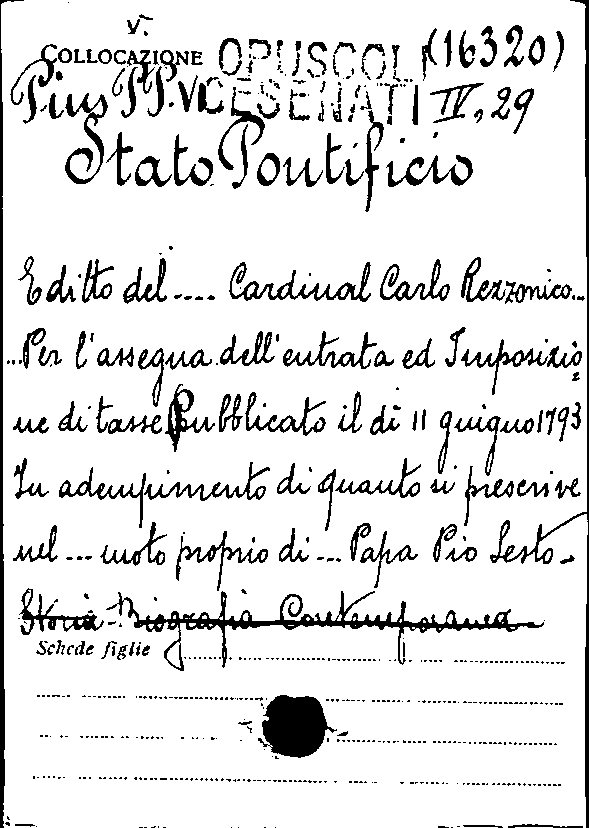 v.
COLLOCAZIONE OPUSCOLI (16320)
Pius PP. VI CESENATI IV, 29
Stato Pontificio
Editto del .... Cardinal Carlo Rezzonico...
...Per l'assegna dell'entrata ed Imposizio
ne di tasse Pubblicato il dì 11 guigno 1793
In adempimento di quanto si prescrive
nel ... moto proprio di ... Papa Pio Sesto -
Storia - Biografia Contemporanea
Schede figlie